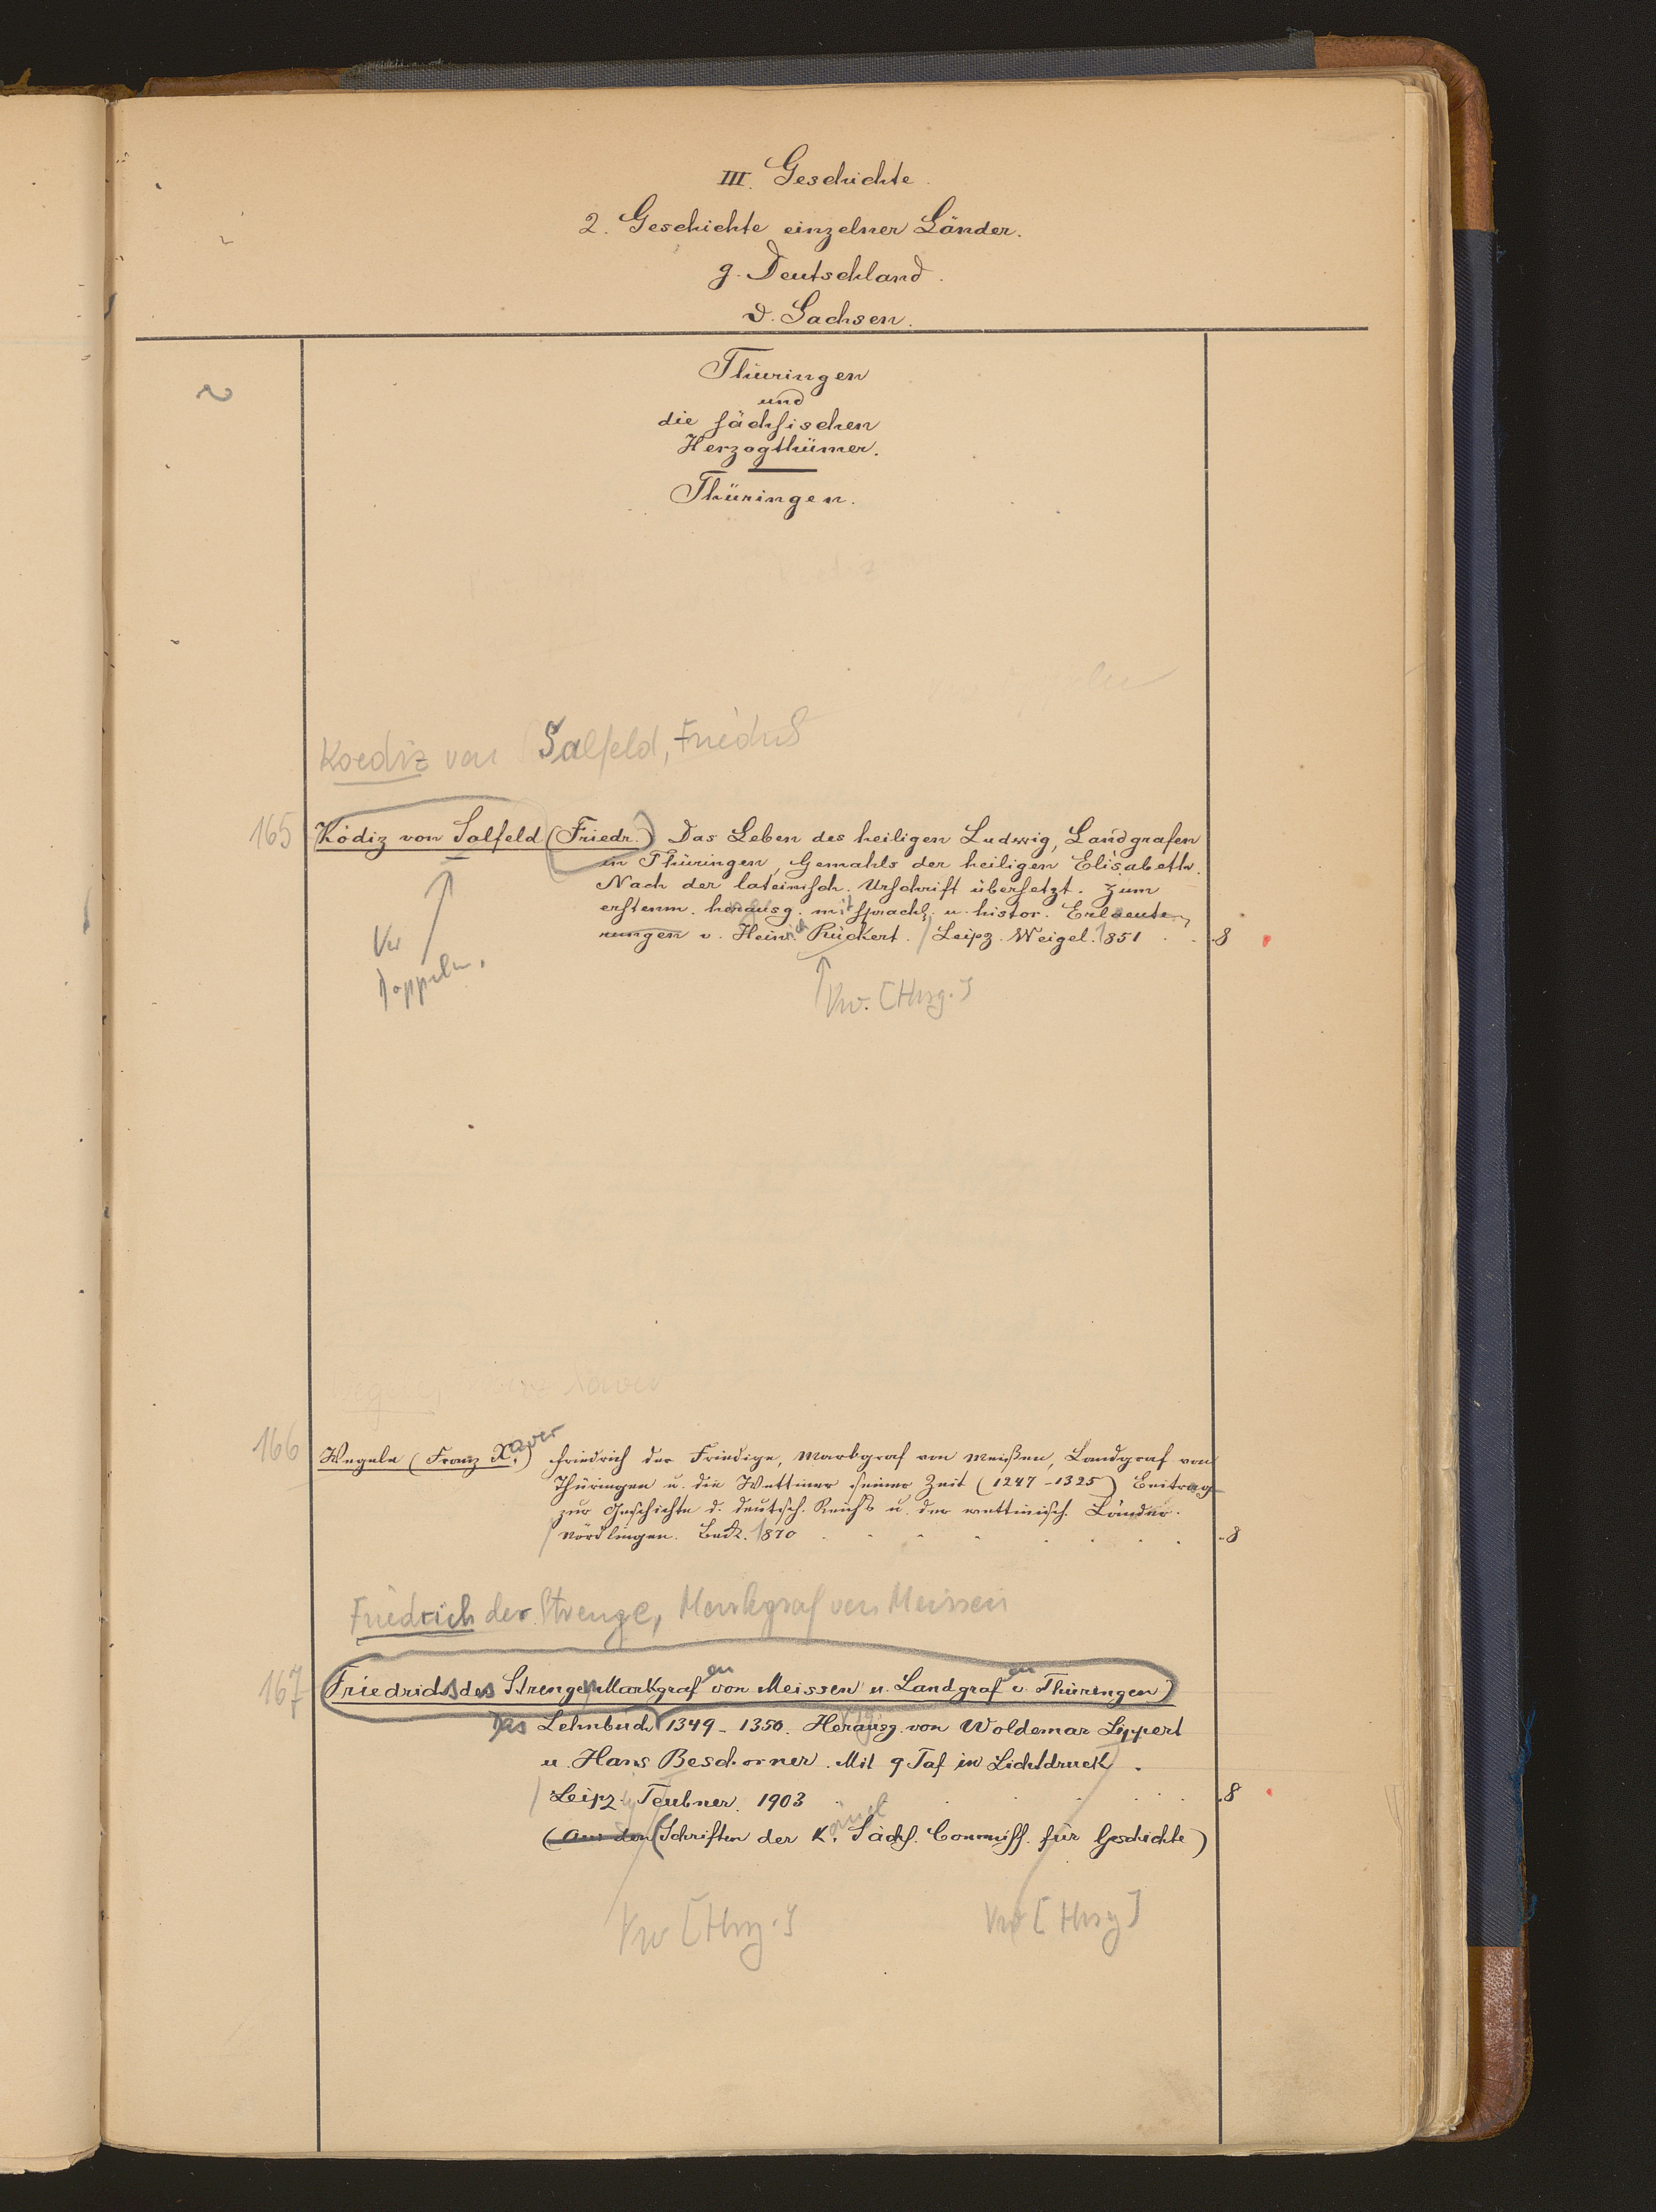 III. Geschichte.
2. Geschichte einzelner Länder.
g. Deutschland.
d. Sachsen.
Thüringen
und
die sächsischen
Herzogthümer.
Thüringen.
Koediz von Salfeld, Friedrich
165 Ködiz von Salfeld (Friedr.) Das Leben des heiligen Ludwig, Landgrafen
in Thüringen, Gemahls der heiligen Elisabeth.
Nach der lateinisch. Urschrift übersetzt. Zum
erstenm. herausg. mit sprachl. u. histor. Erlaeute-
rungen v. Heinr. Rückert. / Leipz. Weigel. 1851 . . 8
Vw. [Hrsg.]
166 Wegele (Franz Xaver) Friedrich der Freidige, Markgraf von Meißen, Landgraf von
Thüringen u. die Wettiner seiner Zeit (1247-1325) Beitrag
zur Geschichte d. deutsch. Reichs u. der wettinisch. Länder.
/ Nördlingen. Beck. 1870 . . . . . . . 8
Friedrich der Strenge, Markgraf von Meissen
167 Friedrichs des Strengen Markgrafen von Meissen u. Landgrafen v. Thüringen
Das Lehnbuch 1349-1350. Herausg. von Woldemar Lippert
u. Hans Beschorner. Mit 9 Taf in Lichtdruck.
/ Leipzig Teubner. 1903 . . . . . . 8
(Aus den (Schriften der K. Sächs. Commiss. für Geschichte)
Vw [Hrsg.] Vw [Hrsg]